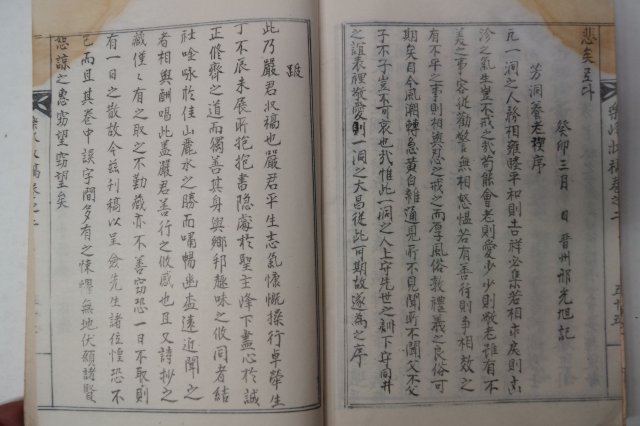 悲矣且夕
癸卯三月 日 晋州 光旭記
芳洞養老禊序
凡一洞之人務相雍睦平和則吉祥必集若相求戾則
沴之氣生豈不戒之哉苟能會老則愛少少則敬老雖有不
美之事容從勸警無相怒慍若有善行則爭相效之
有不平之事則相與忍之戒之而厚風俗敦禮義之良俗可
期矣目今風潮轉急黃白雜通見所不見聞所不聞父不父
子不子豈不可哀也哉惟此一洞之人上守先世之訓下守同井
之誼表裡敬愛則一洞之大昌從此可期故遂為之序
跋
此乃嚴君收稿也嚴君平生志氣慷慨操行卓犖生
丁不辰未展所抱抱書隱處於聖主峰下盡心於誠
正修齊之道而獨善其身與鄉邦趣味之攸同者結
社唫咏於佳山麗水之勝而嘯暢幽盃遠近聞之
者相與酬唱此盖嚴君善行之攸感也且又詩抄之
藏僅僅有之取之不勤藏亦不善窃恐一日不取則
有一日之散故今玆刊稿以呈僉先生諸位惶恐不
已而且其卷中誤字間多有之悚懼無地伏願諸賢
恕諒之惠窃望窃望矣